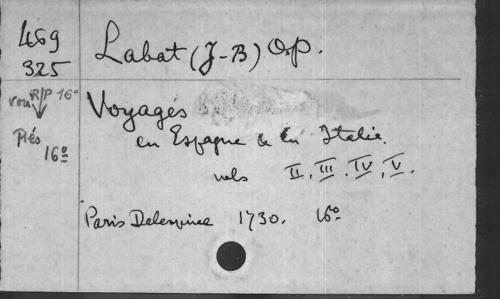 469
325
Labat (J-B) O.p.
R/P 16º
Rés
16º
Voyages
en Espagne & en Italie.
vols II. III. IV. V.
Paris Delespine 1730. 16º